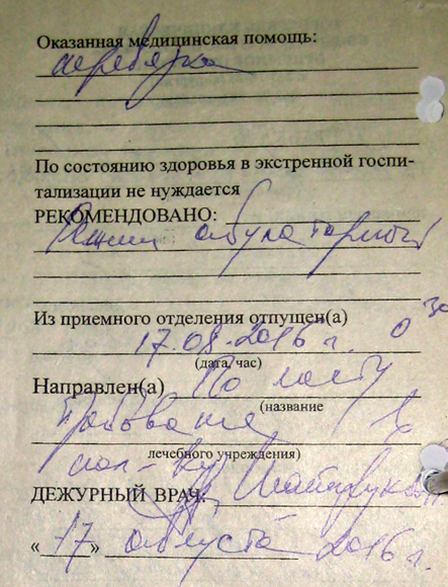 Оказанная медицинская помощь:
перевязка
По состоянию здоровья в экстренной госпи-
тализации не нуждается
РЕКОМЕНДОВАНО:
Режим амбулаторный
Из приемного отделения отпущен(а)
17.08.2016 г.
(дата, час)
Направлен(а) По месту
(название
требования в
лечебного учреждения)
пол-ку
ДЕЖУРНЫЙ ВРАЧ:
«17» августа 2016 г.